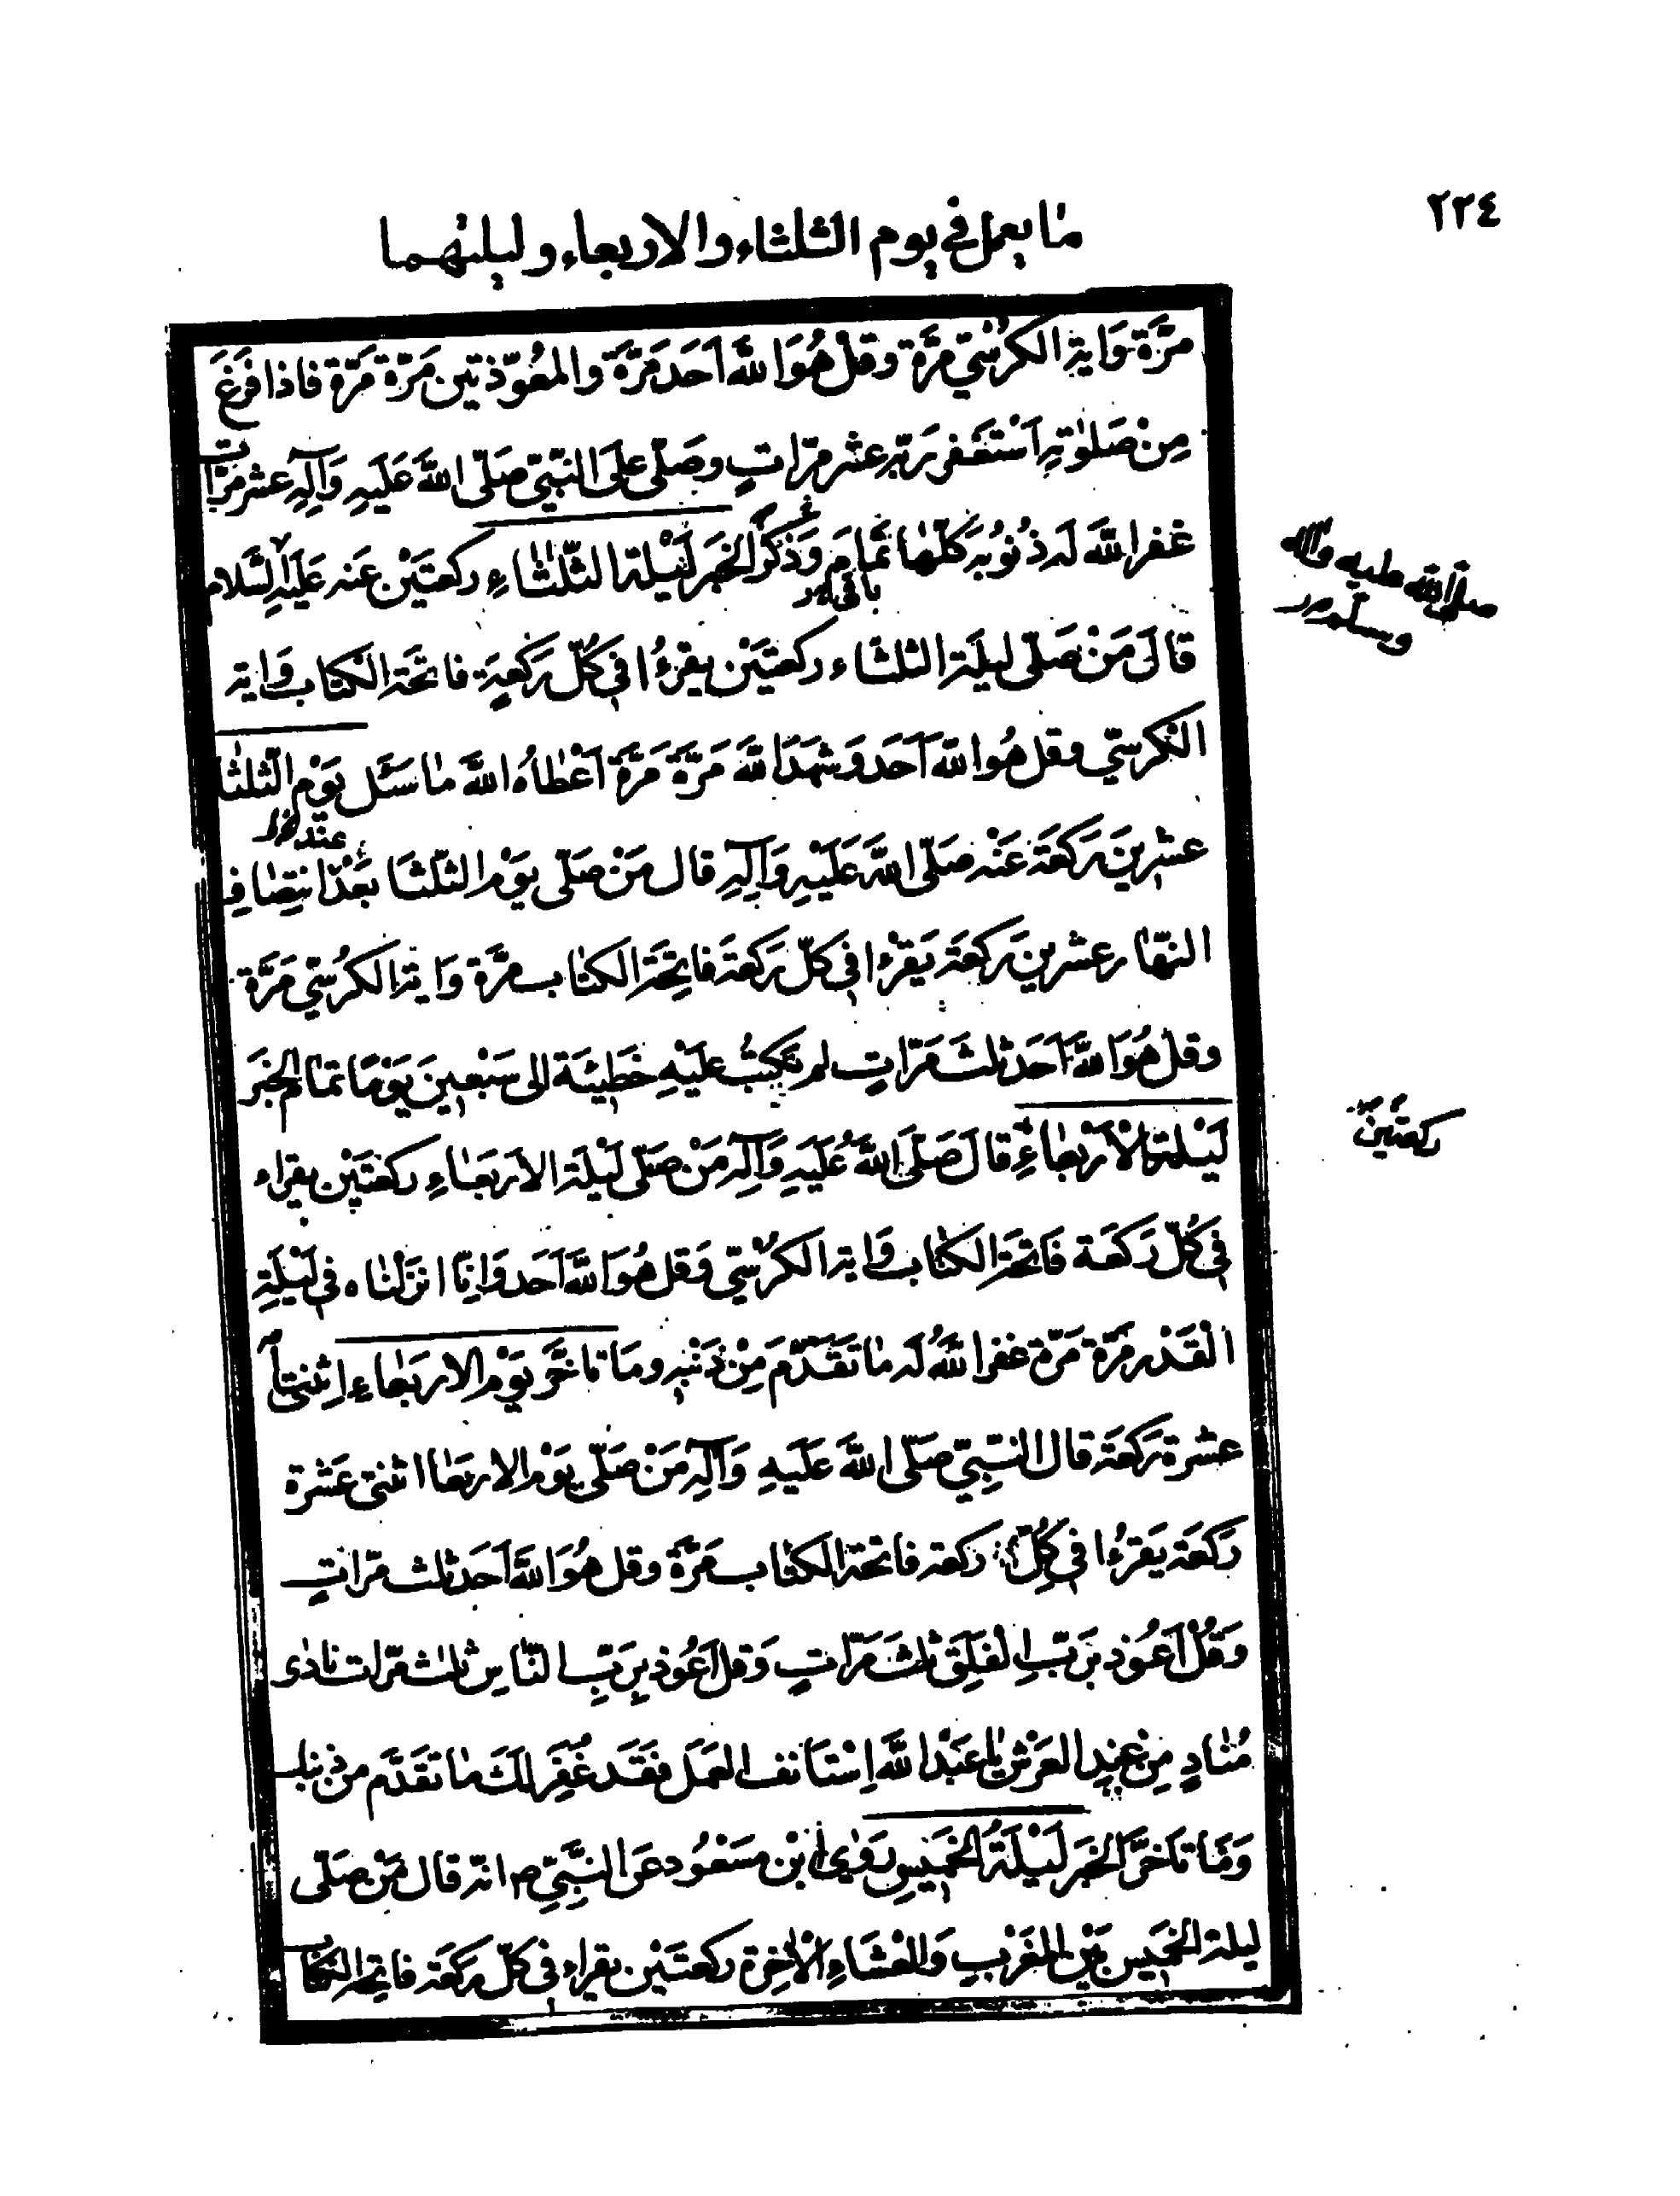 ٢٢٤
ما يعمل في يوم الثلثاء والاربعاء وليلتهما
مَرَّة وَاية الكرْسيّ مَرَّة وقل هُوَ اللّٰهُ اَحَد مَرَّةً والمعُوّذتين مَرّة مَرَّة فاذا فَرَغَ
مِنْ صَلوٰتِهِ اَسْتَغفر رَبّه عشر مرّاتٍ وصَلّى عَلَى النّبيّ صَلّى اللّٰهُ عَلَيهِ وَآلِهِ عشر مرّات
غفر اللّٰهُ له ذُنُوبه كلّها تمامَ وَذكَر الخبَر لَيْلة الثّلثاءِ ركعتَيْن عنه عَلَيهِ السَّلام
باقي
صلى الله عليه واله
وسلم
قالَ مَنْ صَلّى ليلَة الثلثاء ركعتيَنْ يقرءُا في كلّ رَكعةٍ فاتحَة الكتاب وَاية
الكرسيّ وقل هُوَ اللّٰه اَحَد وَشَهدَ اللّٰهُ مَرَّةً مَرَّةً اَعْطاهُ اللّٰهُ ما سَئَل يَوْم الثّلثا
عشرينَ رَكعَة عَنْه صَلّى اللّٰهُ عَلَيْهِ وَآلِهِ قال مَنْ صَلّى يَوْم الثلثَا بَعْدَ انتِصافِ
عند
النّهار عشرين رَكعَة يَقرْءا في كلّ رَكعَة فاتِحَة الكتاب مرَّة وَاية الكرُسّي مَرَّة
وقل هُوَ اللّٰهُ اَحَد ثلثَ مَرّاتٍ لم تكتبُ عليْهِ خَطيئَة الى سَبْعينَ يَوْمًا تمام الخبَر
لَيْلة الْاَرْبعاءِ قالَ صَلَّى اللّٰهُ عَلَيَهِ وَآلِهِ مَنْ صَلّى لَيْلَة الاَربَعاءِ ركعتَيْن يقراء
ركعتينَ
في كُلّ رَكعَة فَاتحَة الكتاب وَاية الكرْسيّ وَقل هُوَ اللّٰهُ اَحَد وَانِّا انزلْناه في لَيْلَةِ
القَدْر مَرَّة مَرّة غفر اللّٰهُ له ما تقَدَّمَ مِنْ ذَنْبِه ومَا تاخَّر يَوْم الاربَعاءِ اثنتا
عشرة رَكعَة قال النّبيّ صَلّى اللّٰهُ عَلَيهِ وَآلِهِ مَنْ صَلّى يَوْم الاربَعا اثنتى عَشْرة
رَكعَة يَقرءُا في كلّ ركعة فاتحة الكتاب مَرَّةً وقل هُوَ اللّٰهُ اَحَد ثلث مرّاتٍ
وَقُلْ اَعُوذ برَبّ الفَلَقِ ثلثَ مَرّاتٍ وَقل اَعُوذ بِرَبِّ النّاسِ ثلث مرّات نادٰى
مُنادٍ مِنْ عِندِ العَرْش يا عَبْدَ اللّٰهِ اِسْتَانف العَمَل فَقَد غُفِرَ لَكَ ما تقَدَّم من ذنبك
وَمَا تاَخَرَّ الخبَر لَيْلَةُ الخَميسِ رَوٰى ابْن مسَعُود عَن النَّبيّ ص انّه قال مَنْ صَلّى
ليلة الخميسِ بَيْن المغَرْب وَالعشَاءِ الْاٰخِرة ركعتَيْن يقراء في كلّ رَكعَة فاتِحة الكتاب